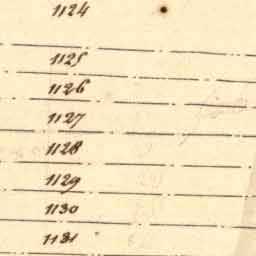 1124
1125
1126
1127
1128
1129
1130
1131